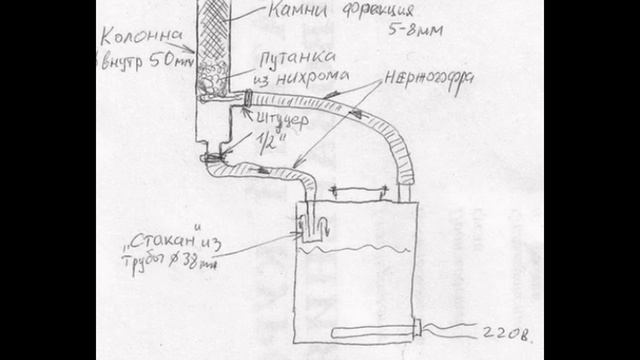 Камни фракция
5-8мм
Колонна
внутр 50мм
Путанка
из нихрома
Нержгофра
Штуцер
1/2"
„Стакан" из
трубы ø38мм
220в.